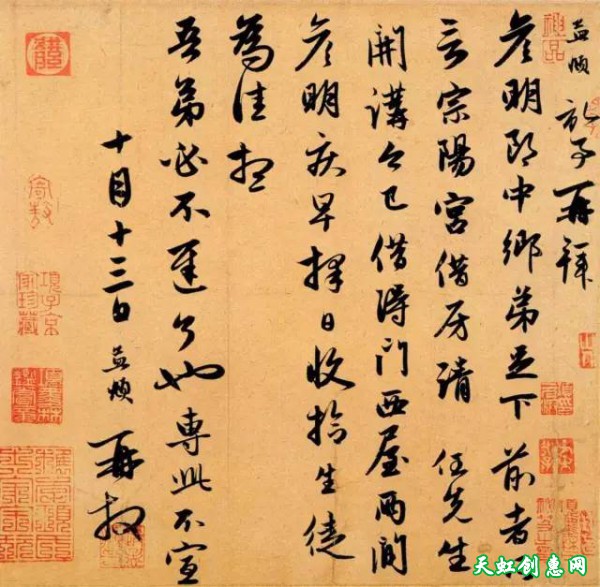 孟頫頓首再拜
彦明郎中鄉弟足下前者
言宗陽宮借房請任先生
開講今已借得門西屋兩間
彦明疾早擇日收拾生徒
為佳想
吾弟必不遲了也專此不宣
十月十三日孟頫再拜
項子京家珍藏
天虹创惠网